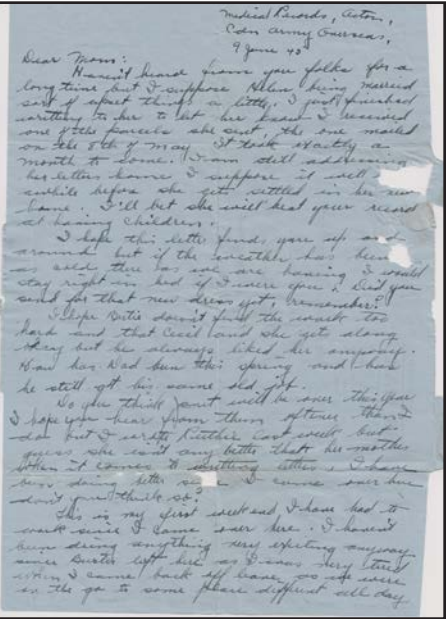 Medical Records, Aston,
Cdn Army Overseas,
9 June 43
Dear Mom:
Haven't heard from you folks for a
long time but I suppose Helen being married
sort of upset things a little. I just finished
writing to her to let her know I received
one of the parcels she sent, the one mailed
on the 8th of May. It took exactly a
month to come. I am still addressing
her letters home I suppose it will
awhile before she gets settled in her new
home. I'll bet she will beat your record
at having children.
I hope this letter finds you up and
around but if the weather has been
as cold there as we are having I would
stay right in bed if I were you. Did you
send for that new dress yet, remember?
I hope doesn't find the work too
hard and that Cecil and she gets along
okay but he always liked her anyway.
How has Dad been this spring and has
he still got his same old job.
Do you think will be over this year
I hope you hear from them oftener than I
do but I wrote last week but
guess she isn't any better that her mother
when it comes to writting letters. I have
been doing better I came over here
don't you think so?
This is my first week and I have had to
work since I came over here. I haven't
been doing anything very exciting anyway
since Buster left here as I was very tired
when I came back off leave as we were
on the go to some place different all day